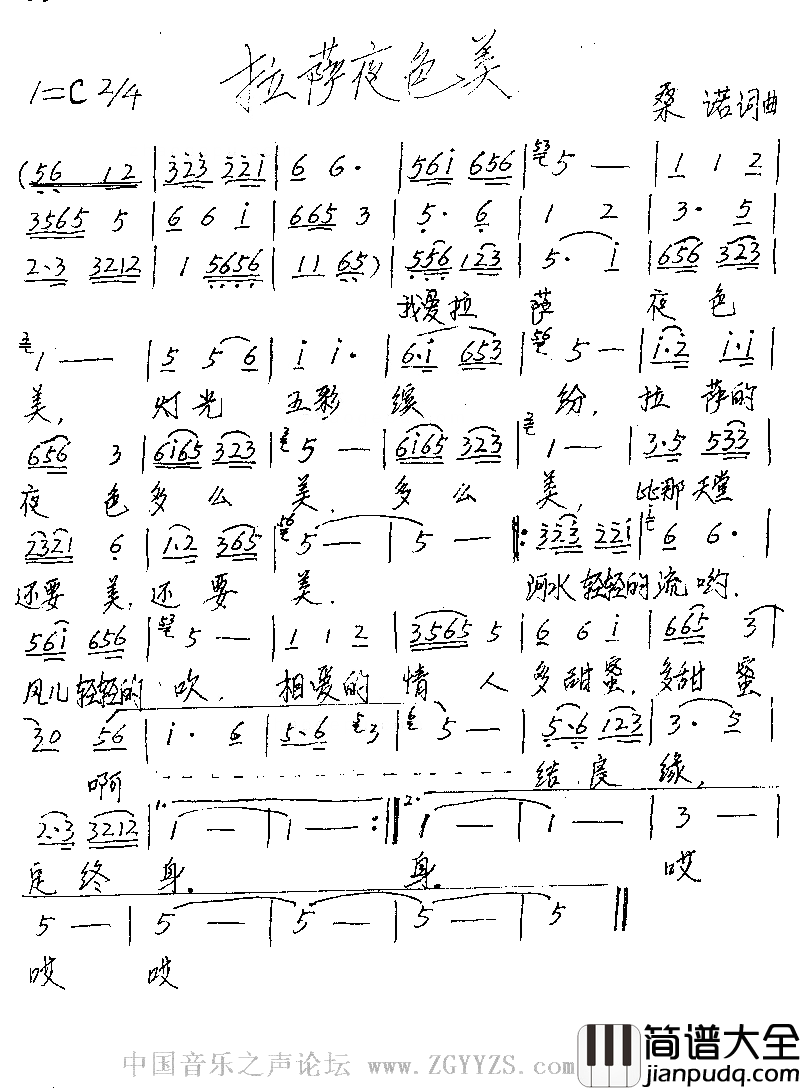 拉萨夜色美
1=C 2/4
桑诺词曲
(56 12 | 323 221 | 6 6· | 561 656 | 5 — | 1 1 2
3565 5 | 6 6 1 | 665 3 | 5· 6 | 1 2 | 3· 5
2·3 3212 | 1 5656 | 11 65) | 556 123 | 5· 1 | 656 323
我爱拉 萨 夜 色
1 — | 5 5 6 | 1 1· | 6·1 653 | 56 5 — | 1·2 1·1
美, 灯光 五彩 缤 纷, 拉 萨的
656 3 | 6165 323 | 5 — | 6165 323 | 2 1 — | 3·5 533
夜 色 多 么 美, 多 么 美, 比那天堂
2321 6 | 1·2 365 | 56 5 — | 5 — ‖: 323 221 | 6 6·
还要 美, 还 要 美. 河水轻轻的流哟.
561 656 | 5 — | 1 1 2 | 3565 5 | 6 6 1 | 665 3
风儿轻轻的 吹, 相爱的 情 人 多甜蜜, 多甜 蜜
30 56 | 1· 6 | 5·6 3 | 5 — | 5·6 123 | 3· 5
啊 结 良 缘,
2·3 3212 | 1. 1 — | 1 — :‖ 2. 1 — | 1 — | 3 —
定 终 身. 身. 哎
5 — | 5 — | 5 — | 5 — | 5 ‖
哎 哎
中国音乐之声论坛 www.ZGYYZS.com
简谱大全
jianpudq.com